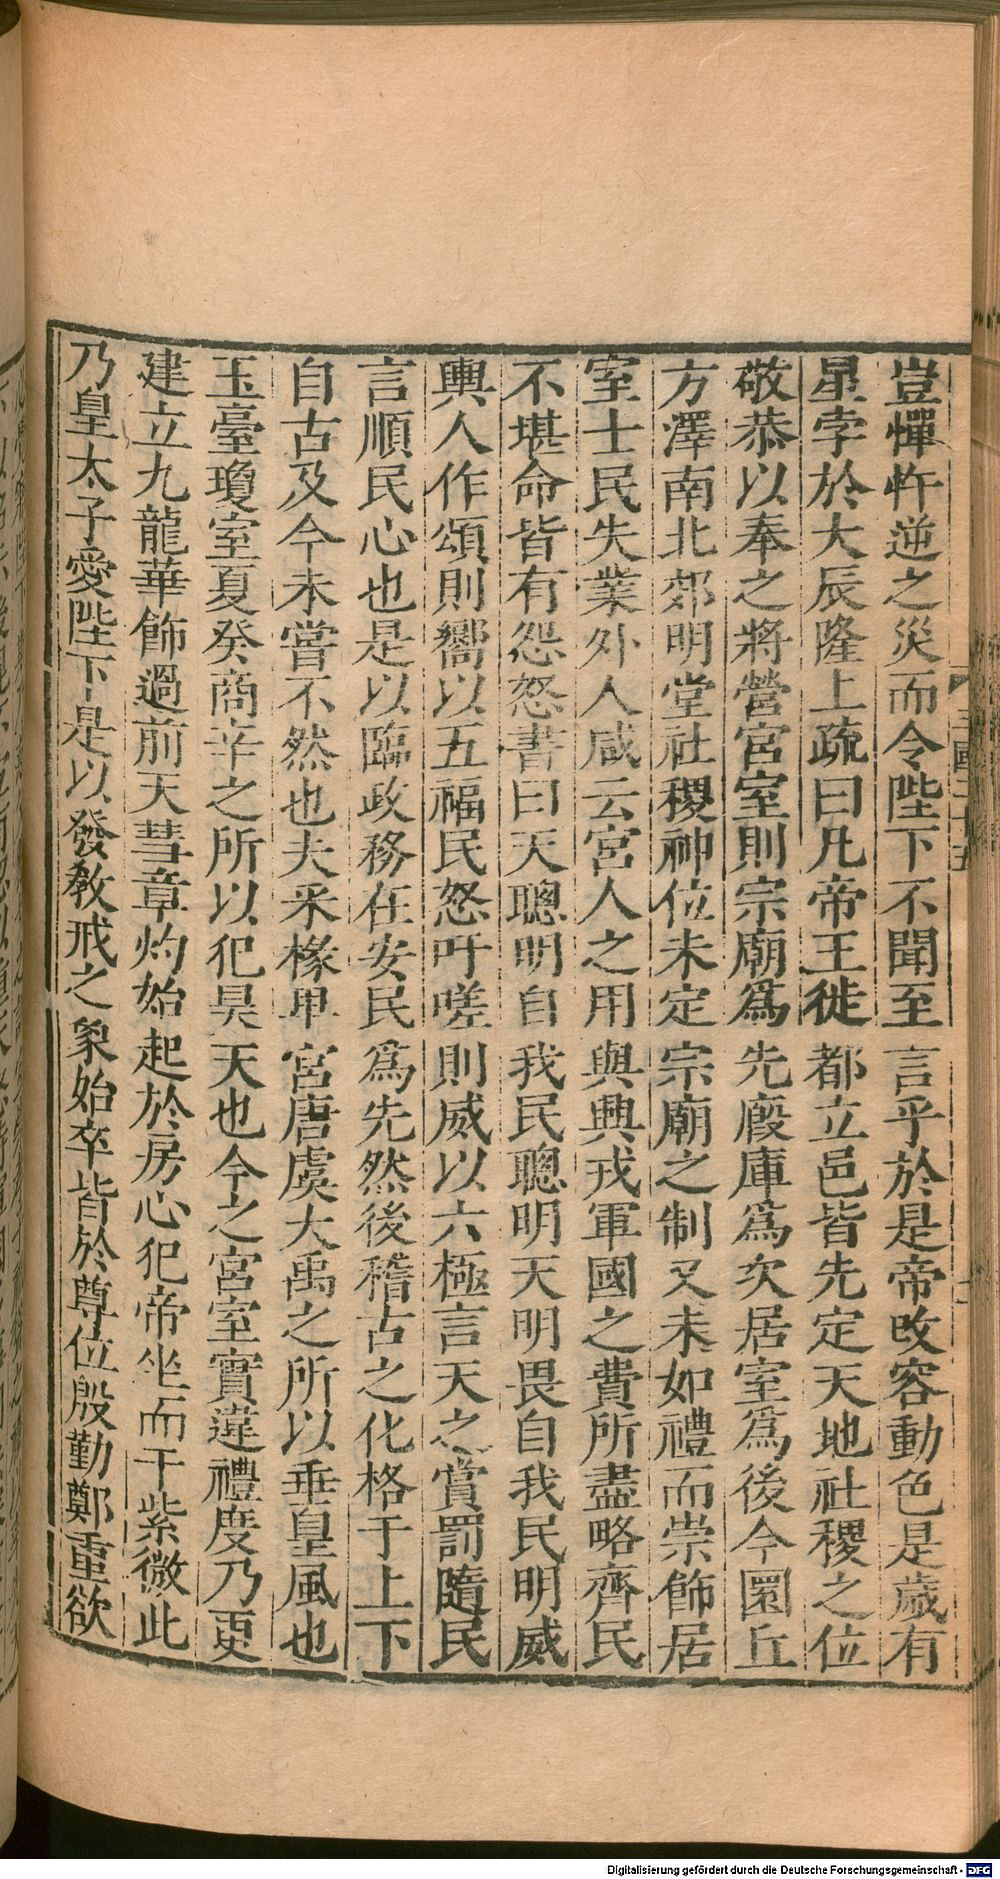 豈憚忤逆之災而令陛下不聞至言乎於是帝改容動色是歲有
星孛於大辰隆上疏曰凡帝王徙都立邑皆先定天地社稷之位
敬恭以奉之將營宮室則宗廟爲先廄庫爲次居室爲後今圜丘
方澤南北郊明堂社稷神位未定宗廟之制又未如禮而崇飾居
室士民失業外人咸云宮人之用與興戎軍國之費所盡略齊民
不堪命皆有怨怒書曰天聰明自我民聰明天明畏自我民明威
輿人作頌則嚮以五福民怒吁嗟則威以六極言天之賞罰隨民
言順民心也是以臨政務在安民爲先然後稽古之化格于上下
自古及今未嘗不然也夫采椽卑宮唐虞大禹之所以垂皇風也
玉臺瓊室夏癸商辛之所以犯昊天也今之宮室實違禮度乃更
建立九龍華飾過前天彗章灼始起於房心犯帝坐而干紫微此
乃皇太子愛陛下是以發教戒之象始卒皆於尊位殷勤鄭重欲
三國二十五
Digitalisierung gefördert durch die Deutsche Forschungsgemeinschaft - DFG